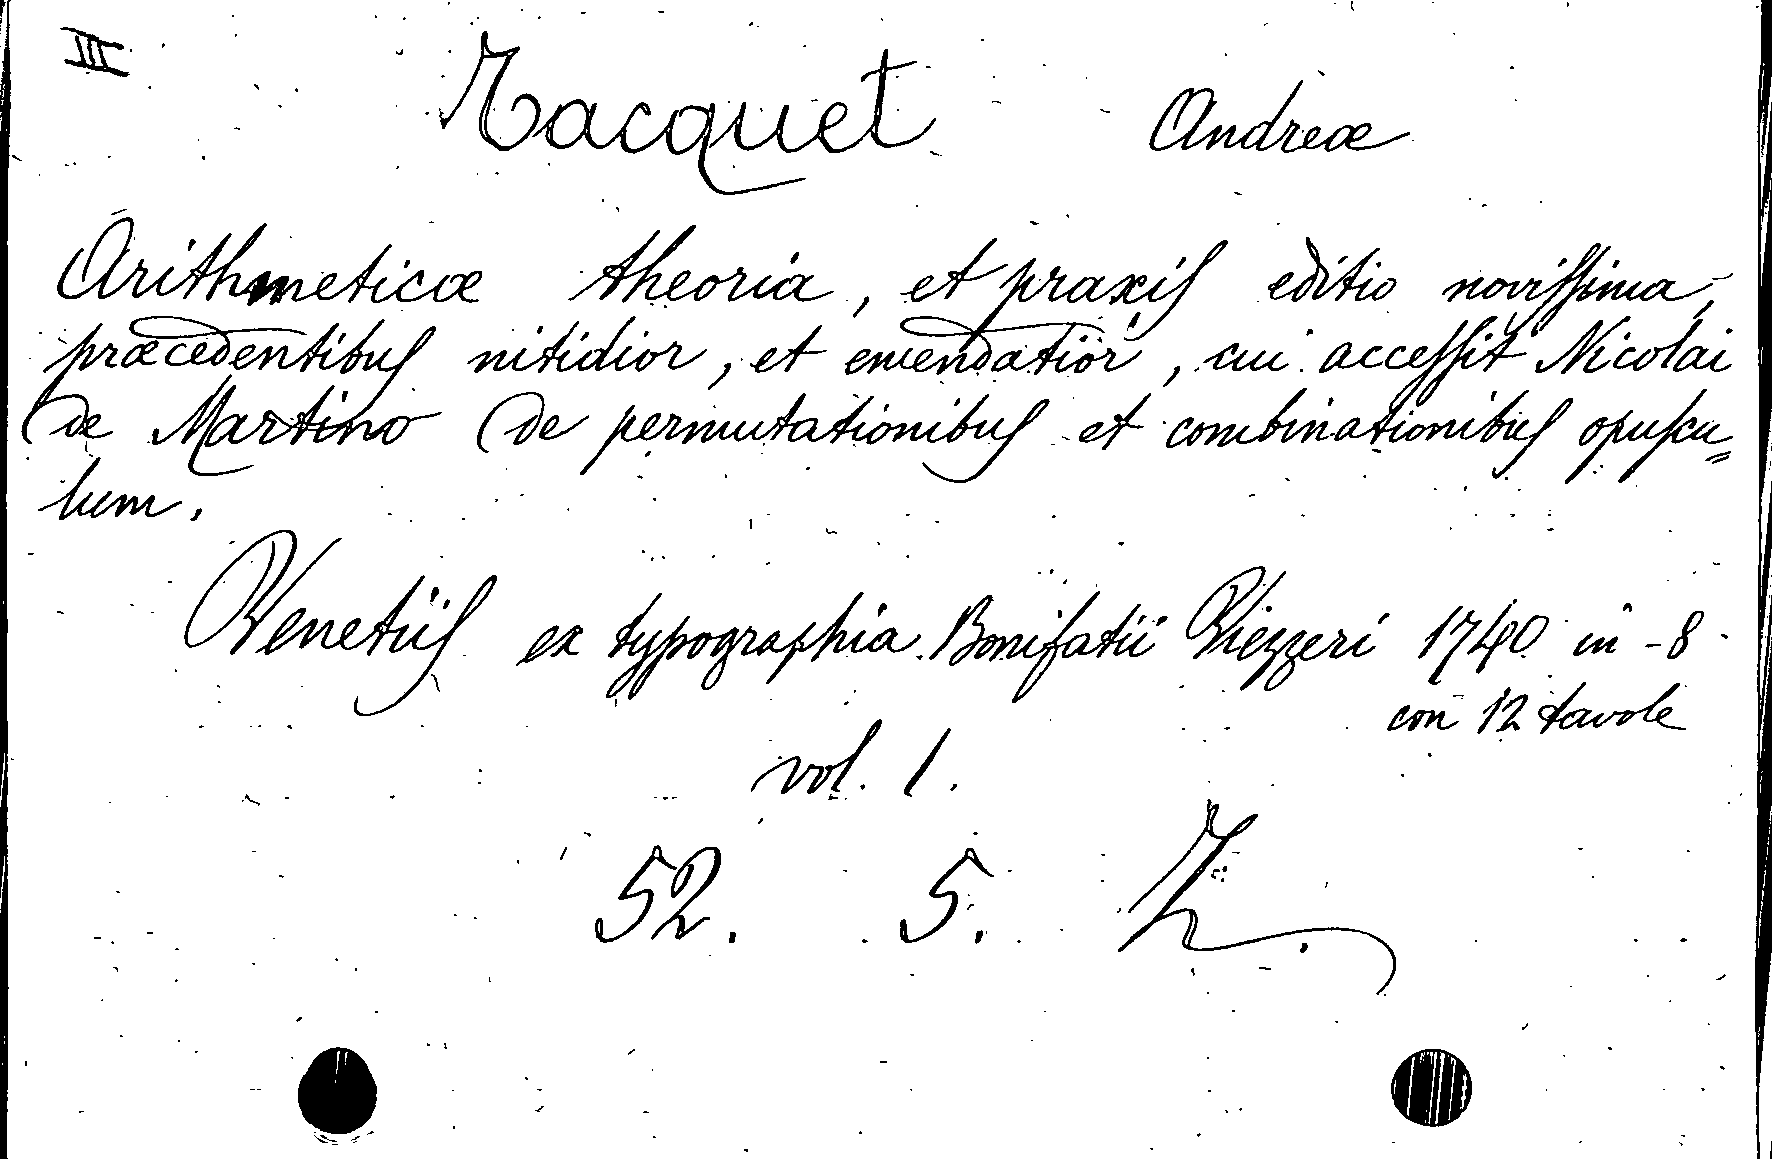 III
Tacquet Andreæ
Arithmeticæ theoria, et praxis editio novissima,
præcedentibus nitidior, et emendatior, cui accessit Nicolai
de Martino de permutationibus et combinationibus opuscu=
lum.
Venetiis ex typographia Bonifatii Viezzeri 1740 in-8
con 12 tavole
vol. 1.
52. 5.